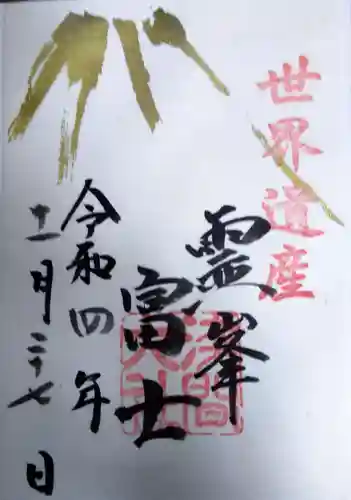 世界遺産
霊峯
富士
浅間大社
令和四年
十一月二十七日